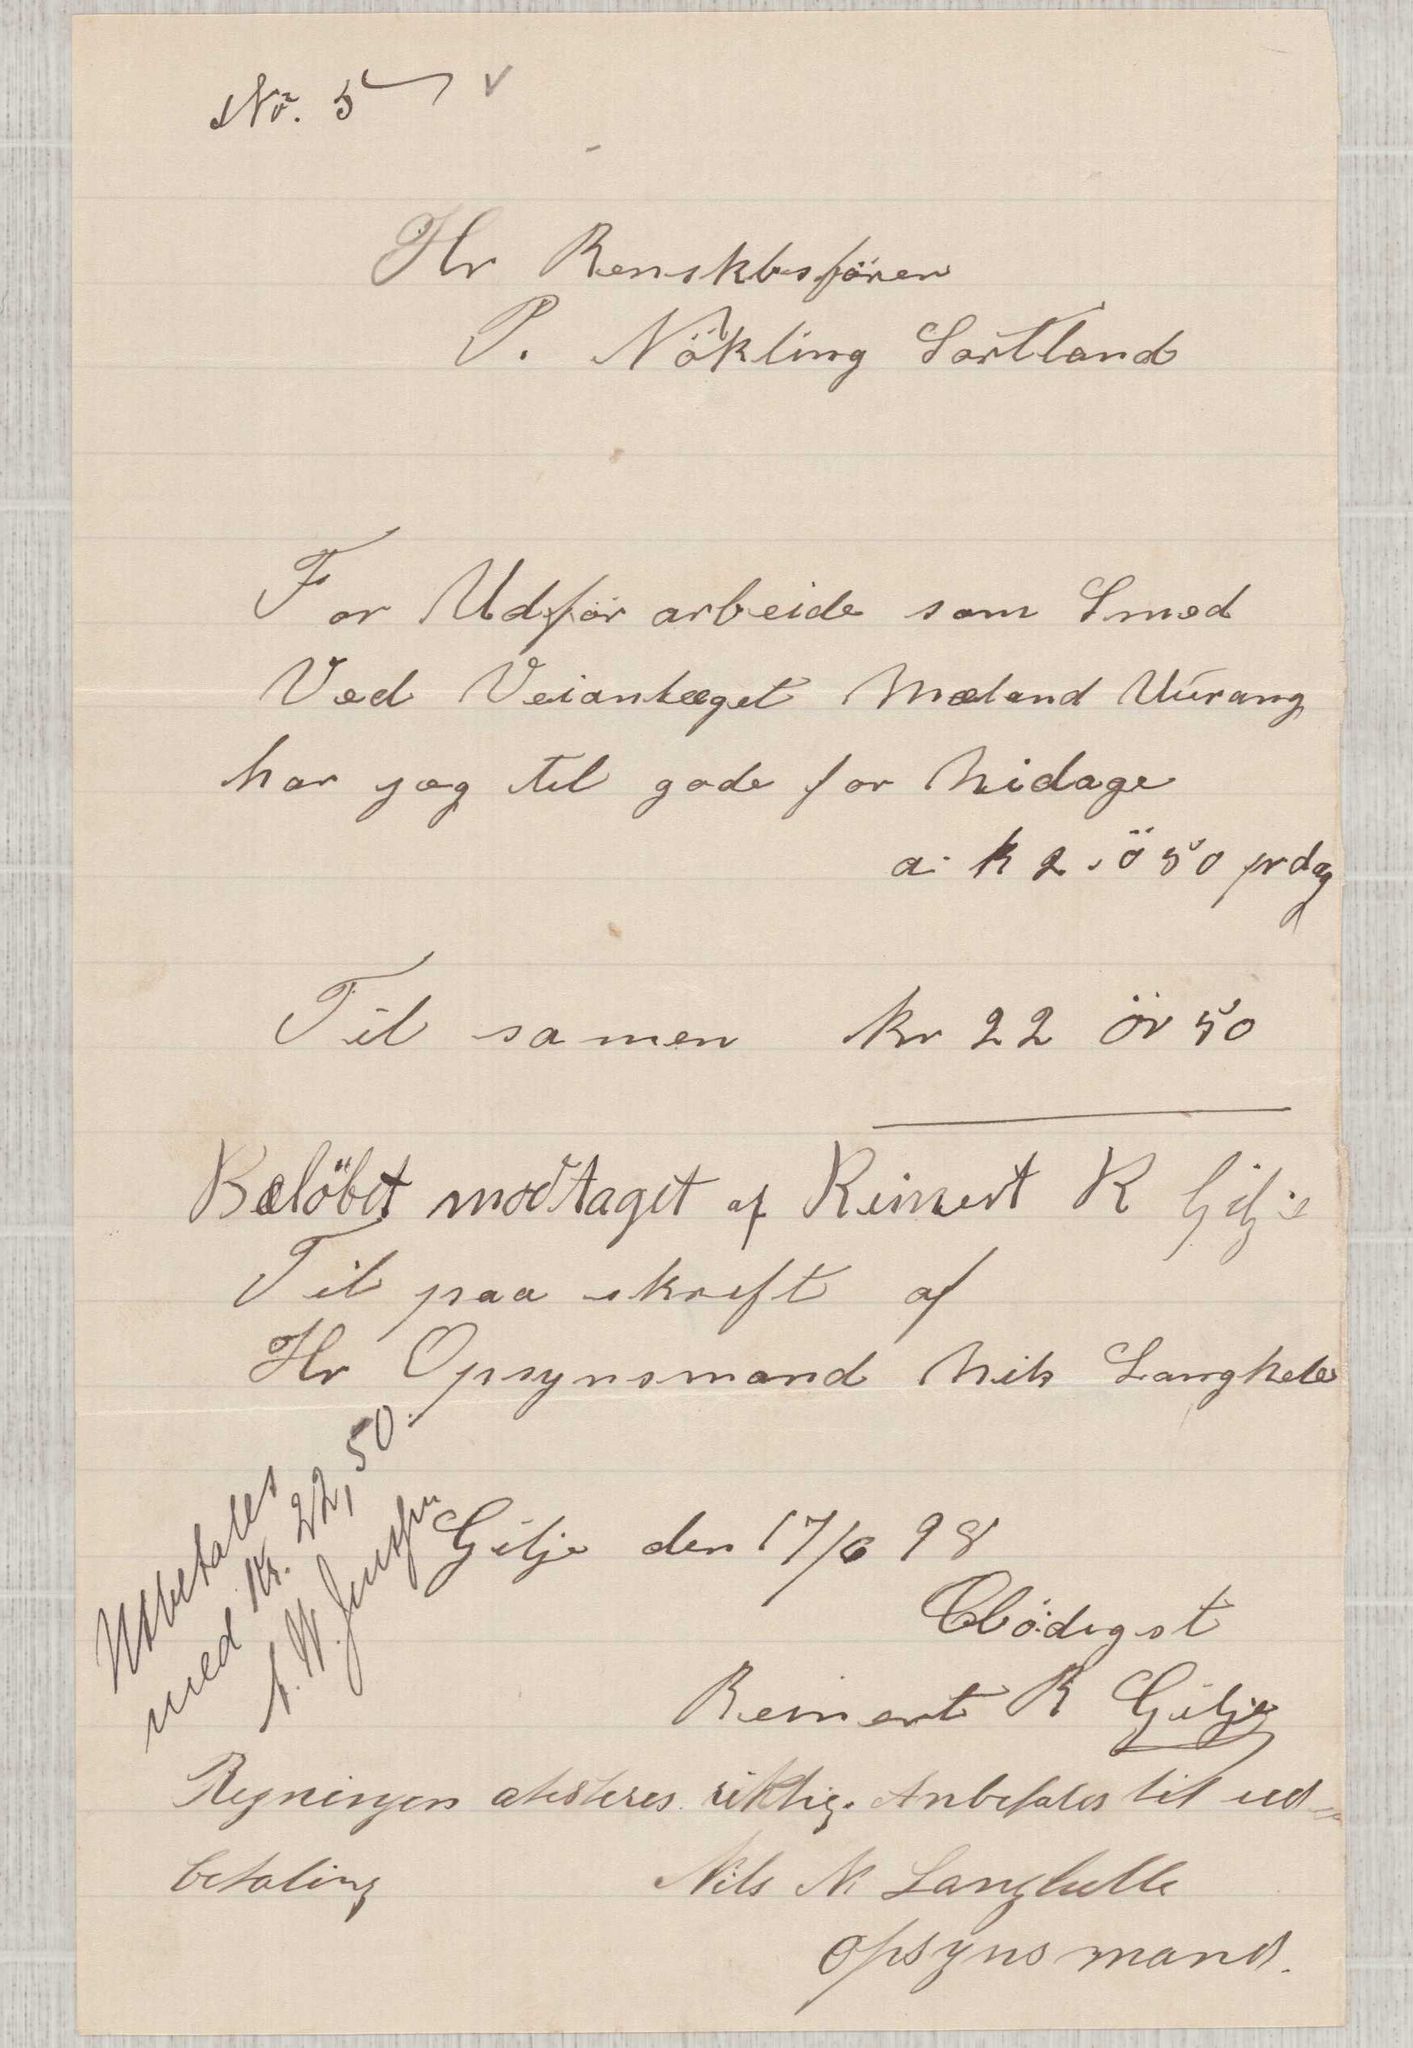 No. 5 v
Hr Renskbsfören
P. Nökling Sortland
For Udför arbeide som Smed
Ved Veianlæget Mæland Uúrang
har jeg til gode for Nidage
a. k 2 . ö 50 pr dag
Til samen kr 22 ör 50
Belöbet modtaget af Reinert R Gilje
Til paa skreft af
Hr Opsynsmand Nils Langhele
Udbetales
med Kr. 22,50.
Gilje den 17/6 98
Ærbödigst
Reinert R Gilje
Regningen atesteres riktig. Anbefales til ud-
betaling Nils N Langhelle
opsynsmand.